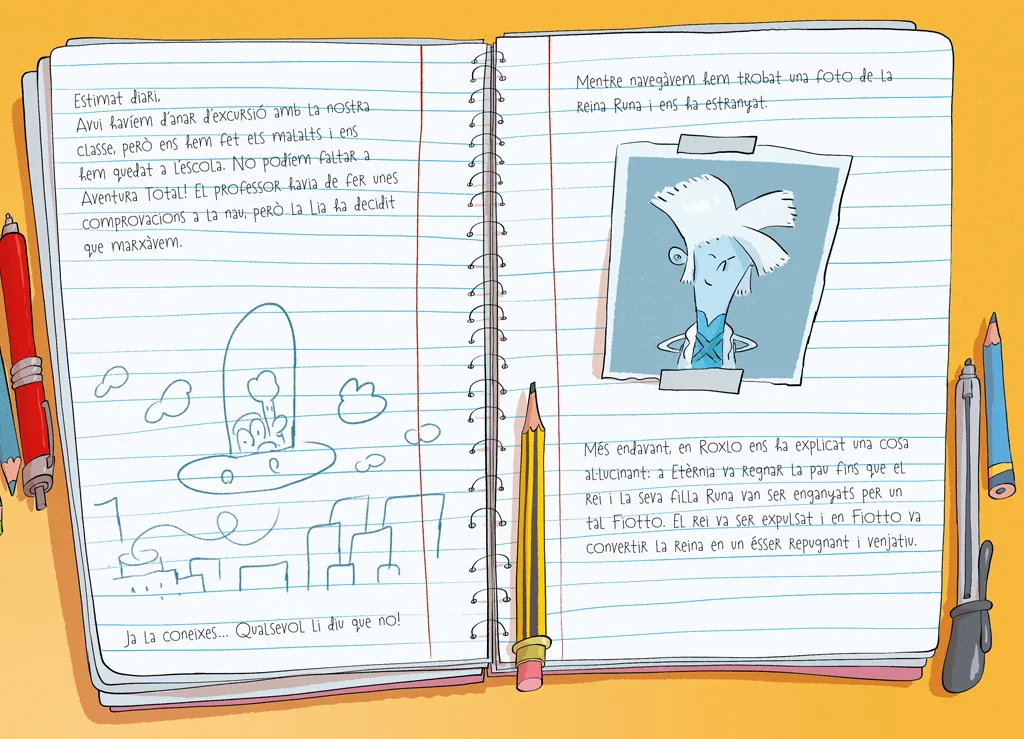 Estimat diari,
Avui havíem d'anar d'excursió amb la nostra
classe, però ens hem fet els malalts i ens
hem quedat a l'escola. No podíem faltar a
Aventura Total! El professor havia de fer unes
comprovacions a la nau, però la Lia ha decidit
que marxàvem.
Ja la coneixes... Qualsevol li diu que no!
Mentre navegàvem hem trobat una foto de la
reina Runa i ens ha estranyat.
Més endavant, en Roxlo ens ha explicat una cosa
al·lucinant: a Etèrnia va regnar la pau fins que el
rei i la seva filla Runa van ser enganyats per un
tal Fiotto. El rei va ser expulsat i en Fiotto va
convertir la reina en un ésser repugnant i venjatiu.